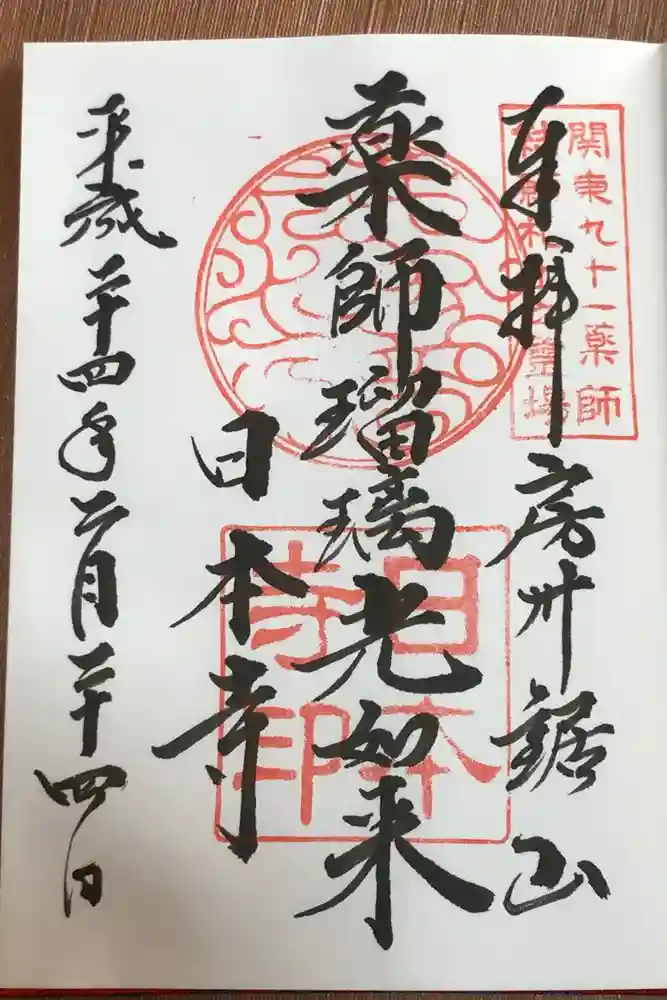 関東九十一薬師
霊場
奉拝 房州鋸山
薬師瑠璃光如来
日本寺
日本
寺印
平成二十四年二月二十四日